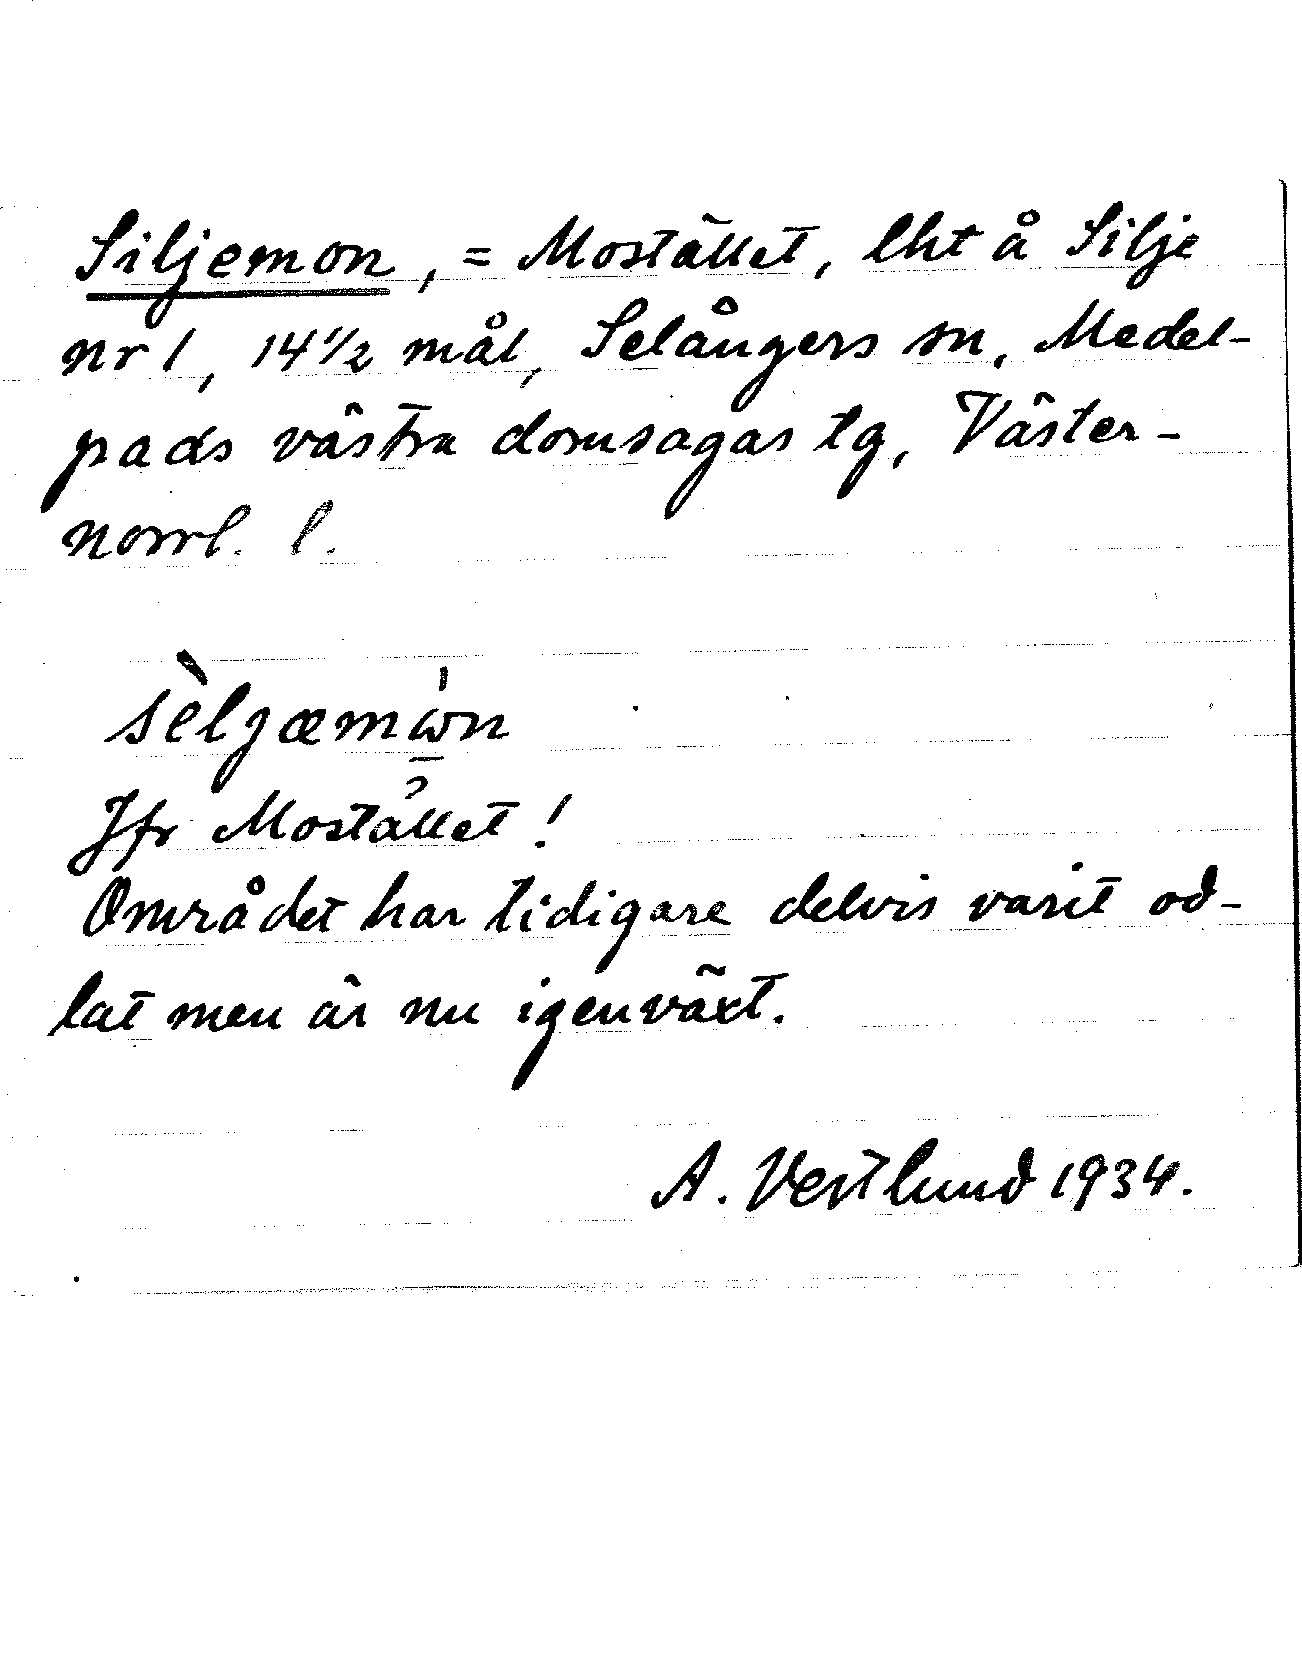 Siljemon, = Mostället, lht å Silje
nr 1, 14½ mål, Selångers sn, Medel-
pads västra domsagas tg, Väster-
norrl. l.
sèljæmωn
Jfr Mostället!
Området har tidigare delvis varit od-
lat men är nu igenväxt.
A. Vestlund 1934.